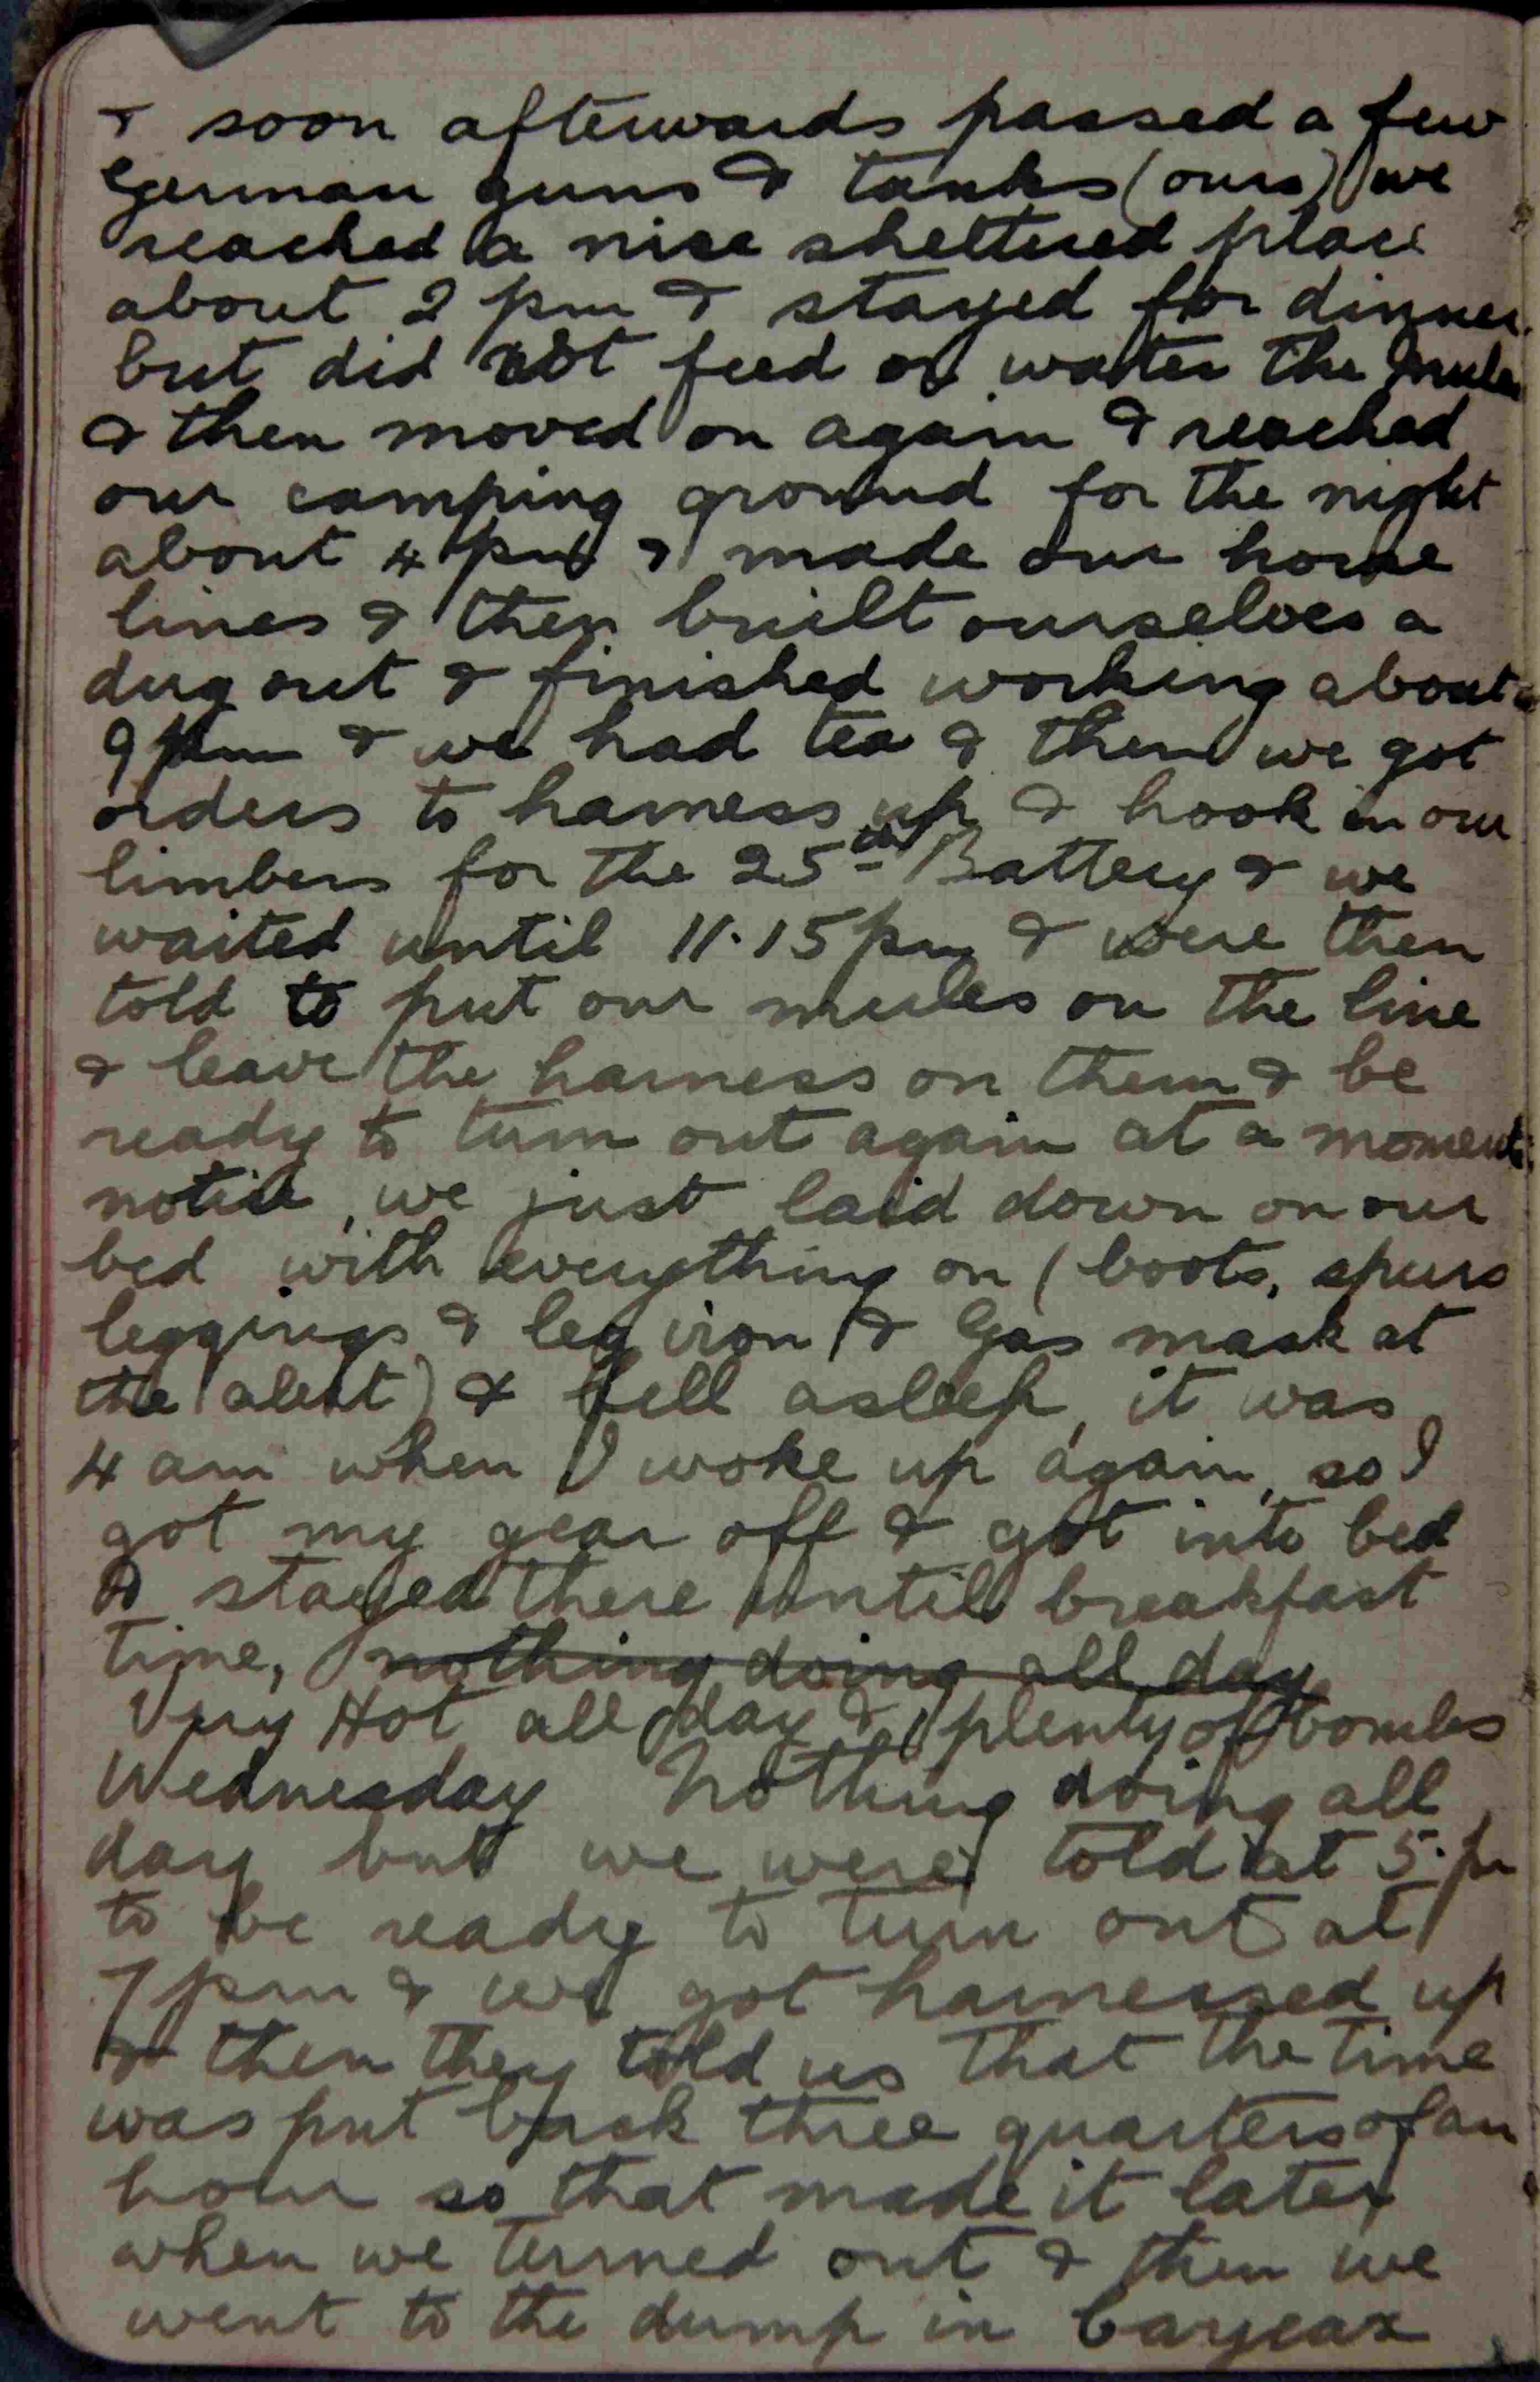 & soon afterwards passed a few
German guns & tanks (ours) we
reached a nice sheltered place
about 2 pm & stayed for dinner
but did not feed or water the mules
& then moved on again & reached
our camping ground for the night
about 4 pm & made our horse
lines & then built ourselves a
dug out & finished working about
9 pm & we had tea & then we got
orders to harness up & hook in our
limbers for the 25th Battery & we
waited until 11.15 pm & were then
told to put our mules on the line
& leave the harness on them & be
ready to turn out again at a moments
notice, we just laid down on our
bed with everything on (boots, spurs
leggings & leg iron & Gas mask at
the alert) & fell asleep, it was
4 am when I woke up again, so I
got my gear off & got into bed
& stayed there until breakfast
time, nothing doing all day
Very Hot all day & plenty of bombs
Wednesday Nothing doing all
day but we were told at 5. pm
to be ready to turn out at
7 pm & we got harnessed up
& then they told us that the time
was put back three quarters of an
hour so that made it later
when we turned out & then we
went to the dump in